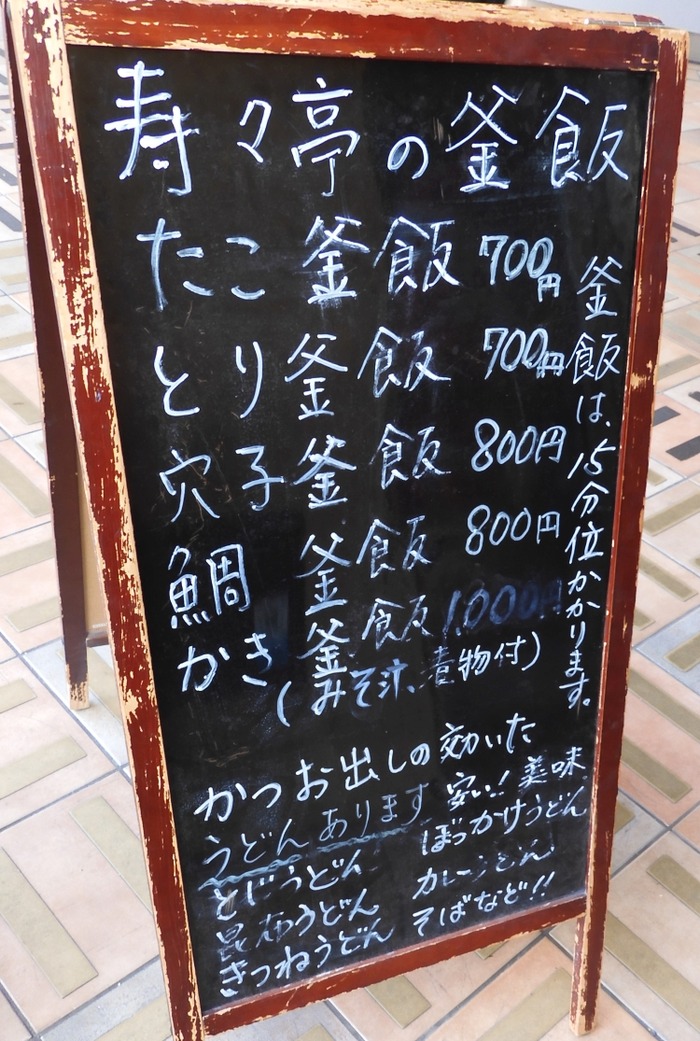 寿々亭の釜飯
たこ釜飯 700円
とり釜飯 700円
穴子釜飯 800円
鯛釜飯 800円
かき釜飯 1,000円
(みそ汁、煮物付)
釜飯は、15分位かかります。
かつお出しの効いた
うどんあります 安い!美味
とじうどん ぼっかけうどん
昆布うどん カレーうどん
きつねうどん そばなど!!